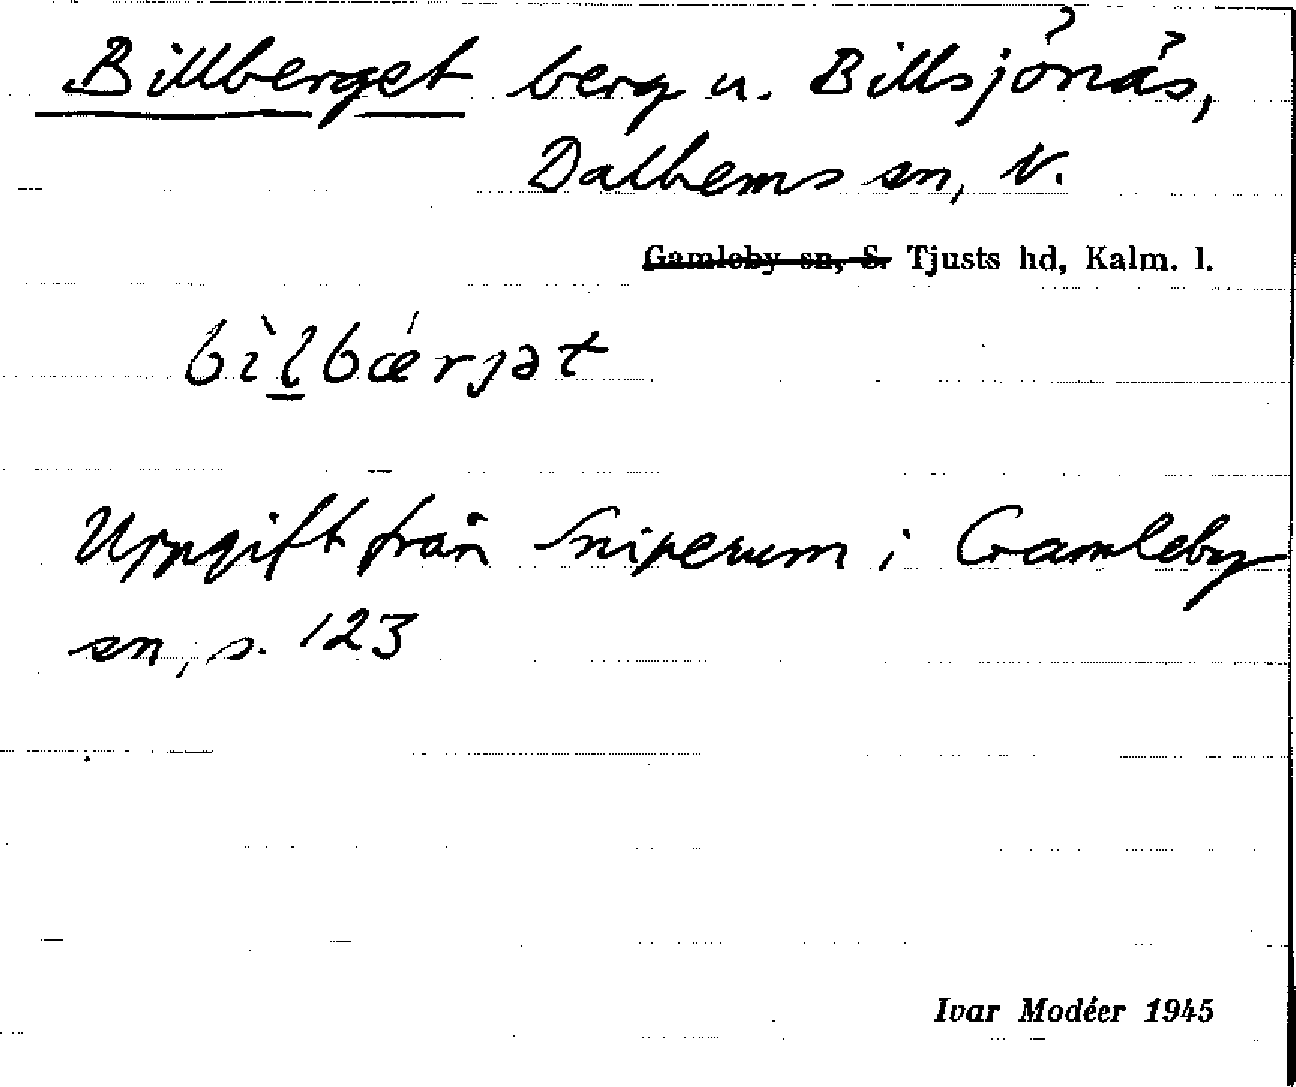 Billberget berg u. Billsjönäs,
Dalhems sn, N.
Gamleby sn, S. Tjusts hd, Kalm. l.
bìlbǽrjət
Uppgift från Sniperum i Gamleby
sn, s. 123
Ivar Modéer 1945